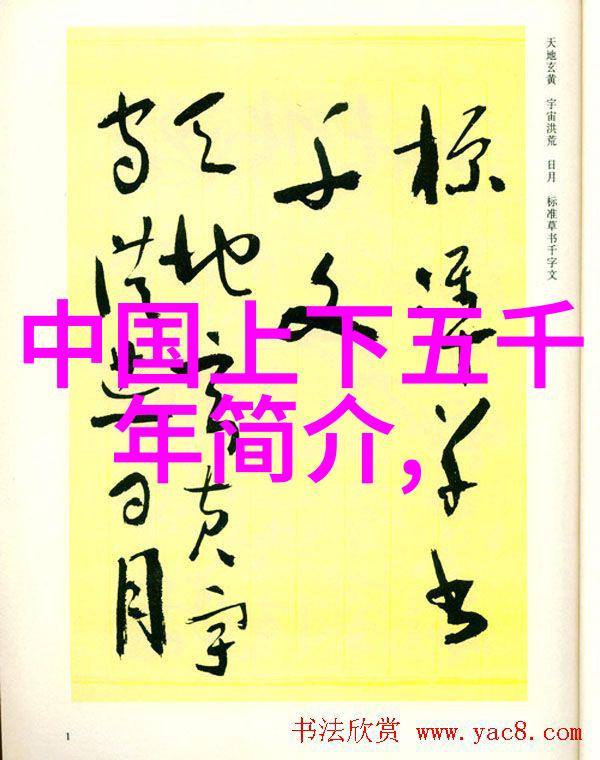 天地玄黄 宇宙洪荒 日月 标准草书千字文
标准草书
千文
天地玄黄宇
宙洪荒日月
中国上下五千
年简介,
1
书法欣赏 www.yac8.com